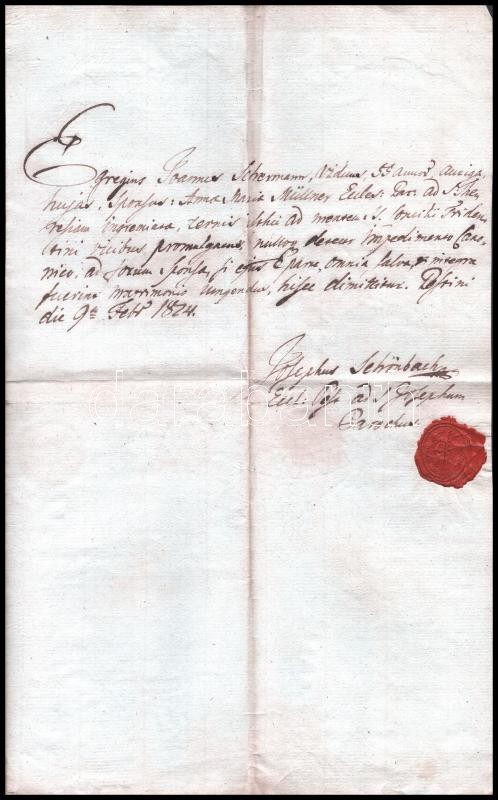 Egregius Joannes Schermann, Viduus, 52 annor, auriga
hujas, Sponsus: Anna Maria Müllner Eccles: Par: ad S. The-
resiam Incremiata, ternis isthic ad mentem S. Concilii Triden-
tini vicibus promulgatus, nulloq detecto Impedimento Cano-
nico, ad forum Sponsa, si ejus ex parte, omnia salva et interea
fuerint matrimonio jungendus, hisce dimittitur. Pestini
die 9a Febr 1824.
Josephus Schönbach
Eccl: Pest ad S Josephum
Parochus.